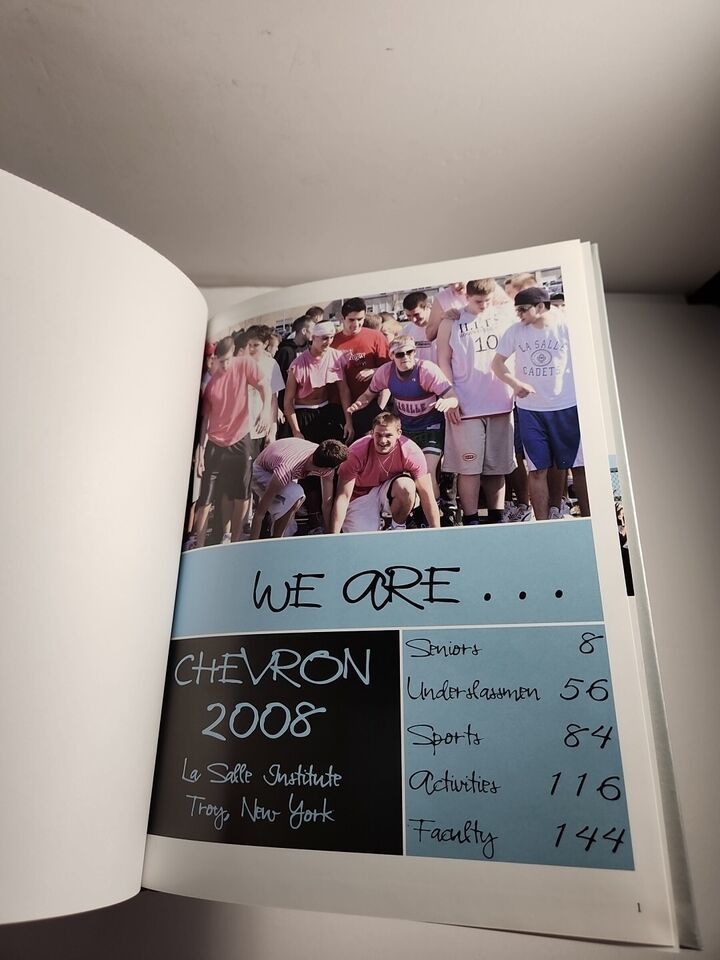 LA SALLE
CADETS
10
WE ARE . . .
CHEVRON
2008
La Salle Institute
Troy, New York
Seniors 8
Underslassmen 56
Sports 84
Activities 116
Faculty 144
1